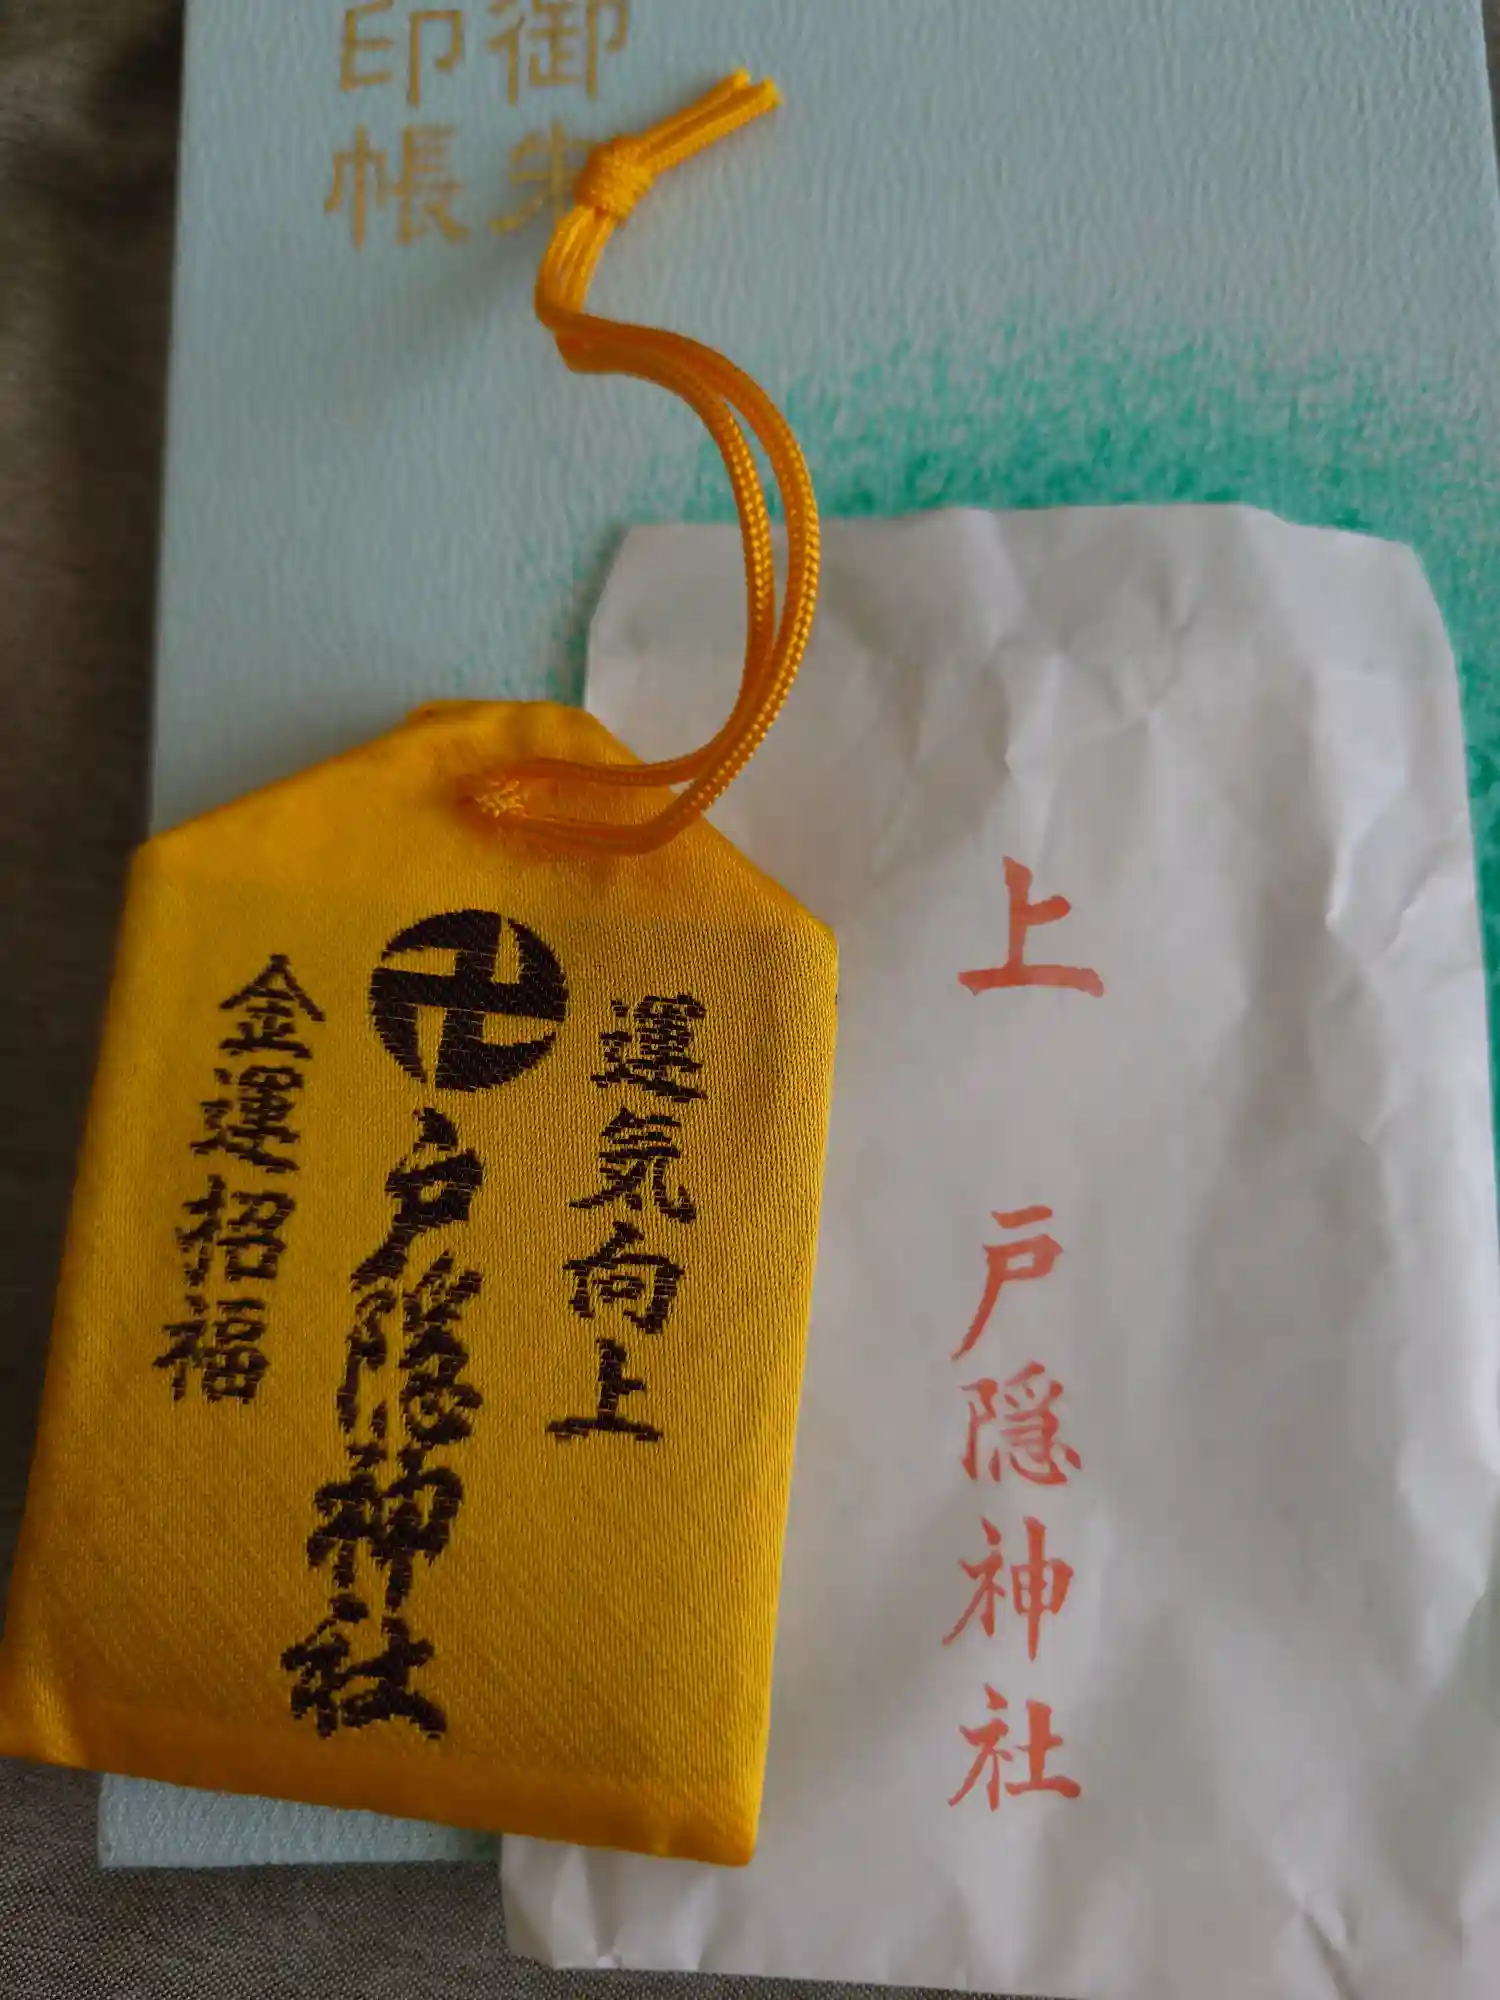 御朱
印帳
運気向上
卍
戸隠神社
金運招福
上
戸隠神社